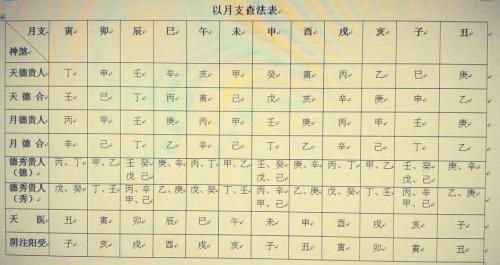 以月支查法表
月支 寅 卯 辰 巳 午 未 申 酉 戌 亥 子 丑
神煞
天德贵人 丁 申 壬 辛 亥 甲 癸 寅 丙 乙 巳 庚
天德合 壬 巳 丁 丙 寅 己 戊 亥 辛 庚 申 乙
月德贵人 丙 甲 壬 庚 丙 甲 壬 庚 丙 甲 壬 庚
月德合 辛 己 丁 乙 辛 己 丁 乙 辛 己 丁 乙
德秀贵人 丙、丁 甲、乙 壬 癸 庚、辛 丙、丁 甲、乙 壬、癸、 庚、辛 丙、丁 甲、乙 壬、癸、 庚、辛
（德） 戊 己 戊 己 戊 己
德秀贵人 戊、癸 丁、壬 丙、辛 乙、庚 戊、癸 丁、壬 丙、辛、 乙、庚 戊、癸 丁、壬 丙、辛 乙、庚
（秀） 甲、己 甲、己 甲、己
天医 丑 寅 卯 辰 巳 午 未 申 酉 戌 亥 子
阴注阳受 子 亥 戌 酉 戌 亥 子 丑 寅 卯 寅 丑